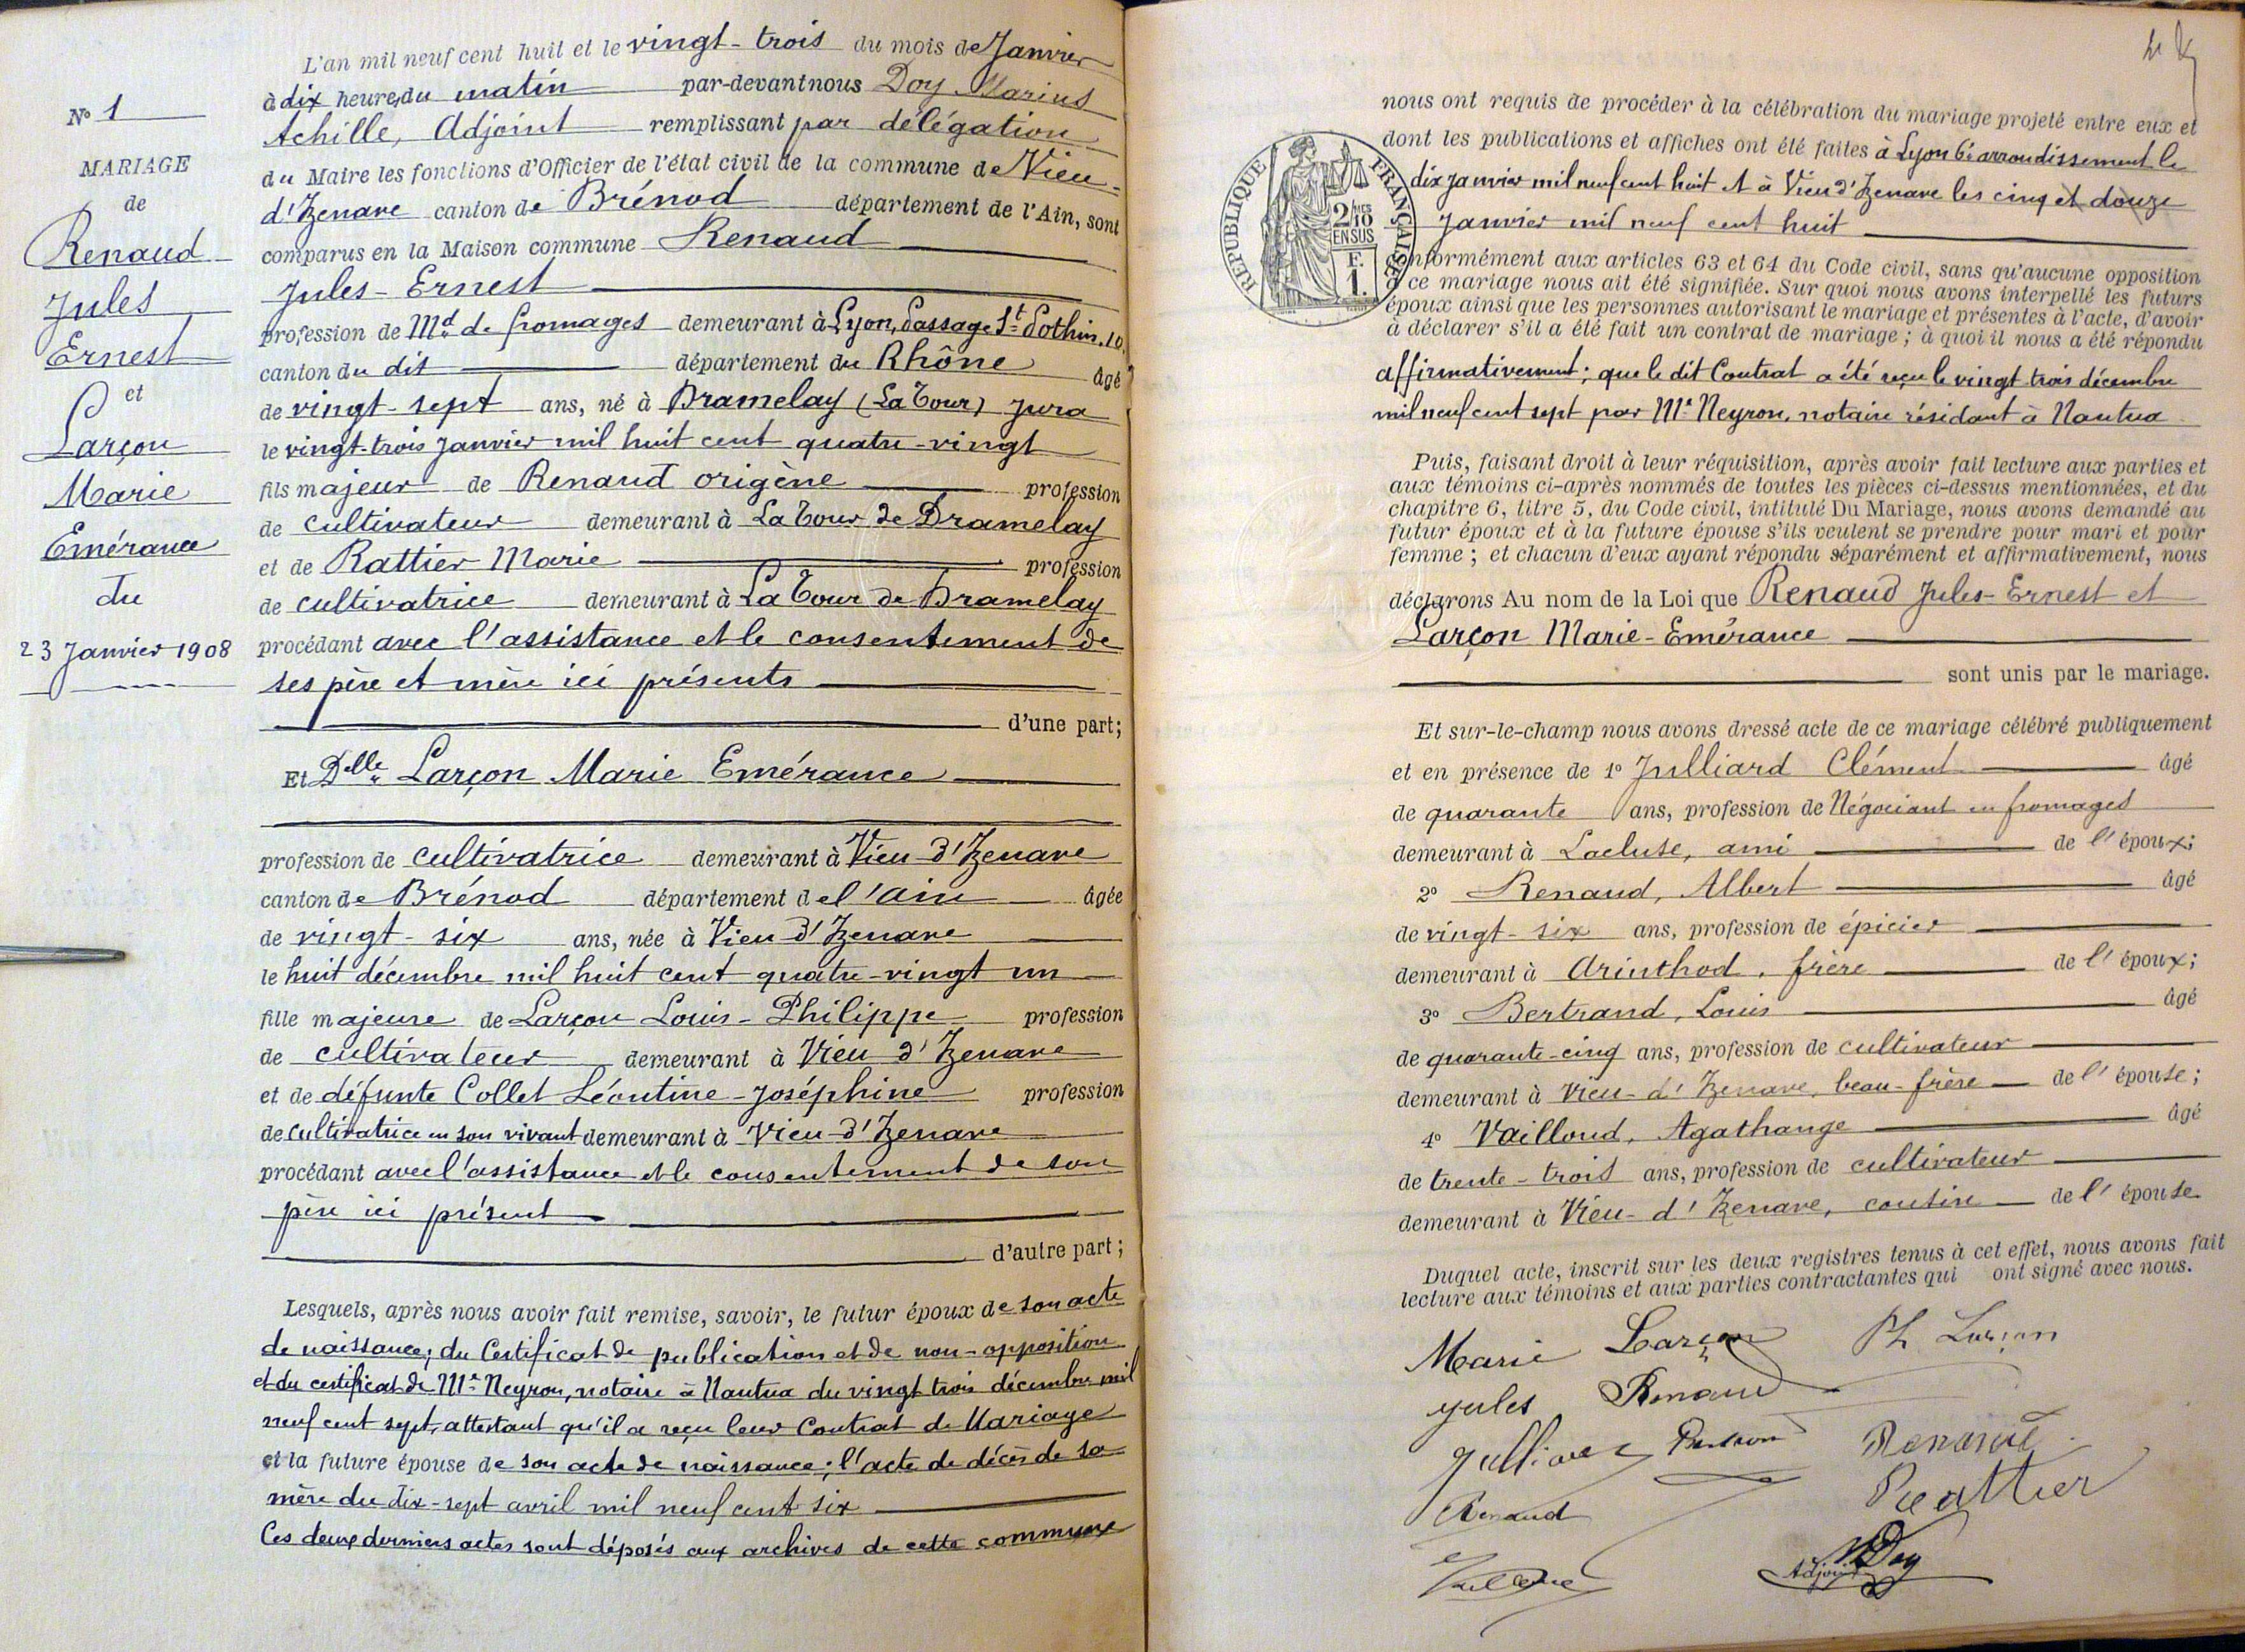 N° 1
MARIAGE
de
Renaud
Jules
Ernest
et
Larçon
Marie
Emérance
du
23 Janvier 1908
L'an mil neuf cent huit et le vingt-trois du mois de Janvier
à dix heures du matin par-devant nous Doy Marius
Achille, Adjoint remplissant par délégation
du Maire les fonctions d'Officier de l'état civil de la commune de Vieu-
d'Izenave canton de Brénod département de l'Ain, sont
comparus en la Maison commune Renaud
Jules-Ernest
profession de Md de fromages demeurant à Lyon, Passage St Pothin, 10.
canton du dit département du Rhône âgé
de vingt-sept ans, né à Dramelay (La Tour) Jura
le vingt-trois Janvier mil huit cent quatre-vingt
fils majeur de Renaud origène profession
de cultivateur demeurant à La Tour de Dramelay
et de Rattier Marie profession
de cultivatrice demeurant à La Tour de Dramelay
procédant avec l'assistance et le consentement de
ses père et mère ici présents
d'une part;
Et Delle Larçon Marie Emérance
profession de cultivatrice demeurant à Vieu-d'Izenave
canton de Brénod département de l'Ain âgée
de vingt-six ans, née à Vieu-d'Izenave
le huit décembre mil huit cent quatre-vingt un
fille majeure de Larçon Louis-Philippe profession
de cultivateur demeurant à Vieu d'Izenave
et de défunte Collet Léontine-Joséphine profession
de cultivatrice en son vivant demeurant à Vieu-d'Izenave
procédant avec l'assistance et le consentement de son
père ici présent
d'autre part;
Lesquels, après nous avoir fait remise, savoir, le futur époux de son acte
de naissance; du Certificat de publication et de non-opposition
et du certificat de Me Neyron, notaire à Nantua du vingt trois décembre mil
neuf cent sept, attestant qu'il a reçu leur Contrat de Mariage
et la future épouse de son acte de naissance; l'acte de décès de sa
mère du dix-sept avril mil neuf cent six
Ces deux derniers actes sont déposés aux archives de cette commune
nous ont requis de procéder à la célébration du mariage projeté entre eux et
dont les publications et affiches ont été faites à Lyon 6e arrondissement le
dix janvier mil neuf cent huit et à Vieu d'Izenave les cinq et douze
Janvier mil neuf cent huit
RÉPUBLIQUE FRANÇAISE
2/10es
EN SUS
F.
1.
conformément aux articles 63 et 64 du Code civil, sans qu'aucune opposition
à ce mariage nous ait été signifiée. Sur quoi nous avons interpellé les futurs
époux ainsi que les personnes autorisant le mariage et présentes à l'acte, d'avoir
à déclarer s'il a été fait un contrat de mariage; à quoi il nous a été répondu
affirmativement; que le dit Contrat a été reçu le vingt trois décembre
mil neuf cent sept par Me Neyron, notaire résidant à Nantua
Puis, faisant droit à leur réquisition, après avoir fait lecture aux parties et
aux témoins ci-après nommés de toutes les pièces ci-dessus mentionnées, et du
chapitre 6, titre 5, du Code civil, intitulé Du Mariage, nous avons demandé au
futur époux et à la future épouse s'ils veulent se prendre pour mari et pour
femme; et chacun d'eux ayant répondu séparément et affirmativement, nous
déclarons Au nom de la Loi que Renaud Jules-Ernest et
Larçon Marie-Emérance
sont unis par le mariage.
Et sur-le-champ nous avons dressé acte de ce mariage célébré publiquement
et en présence de 1° Julliard Clément âgé
de quarante ans, profession de Négociant en fromages
demeurant à Lacluse, ami de l'époux;
2° Renaud, Albert âgé
de vingt-six ans, profession de épicier
demeurant à Arinthod, frère de l'époux;
3° Bertrand, Louis âgé
de quarante-cinq ans, profession de cultivateur
demeurant à Vieu-d'Izenave, beau-frère de l'épouse;
4° Vailloud, Agathange âgé
de trente-trois ans, profession de cultivateur
demeurant à Vieu-d'Izenave, cousin de l'épouse
Duquel acte, inscrit sur les deux registres tenus à cet effet, nous avons fait
lecture aux témoins et aux parties contractantes qui ont signé avec nous.
Marie Larçon Ph Larçon
Jules Renaud
Renaud
Renaud
Adjoint Doy